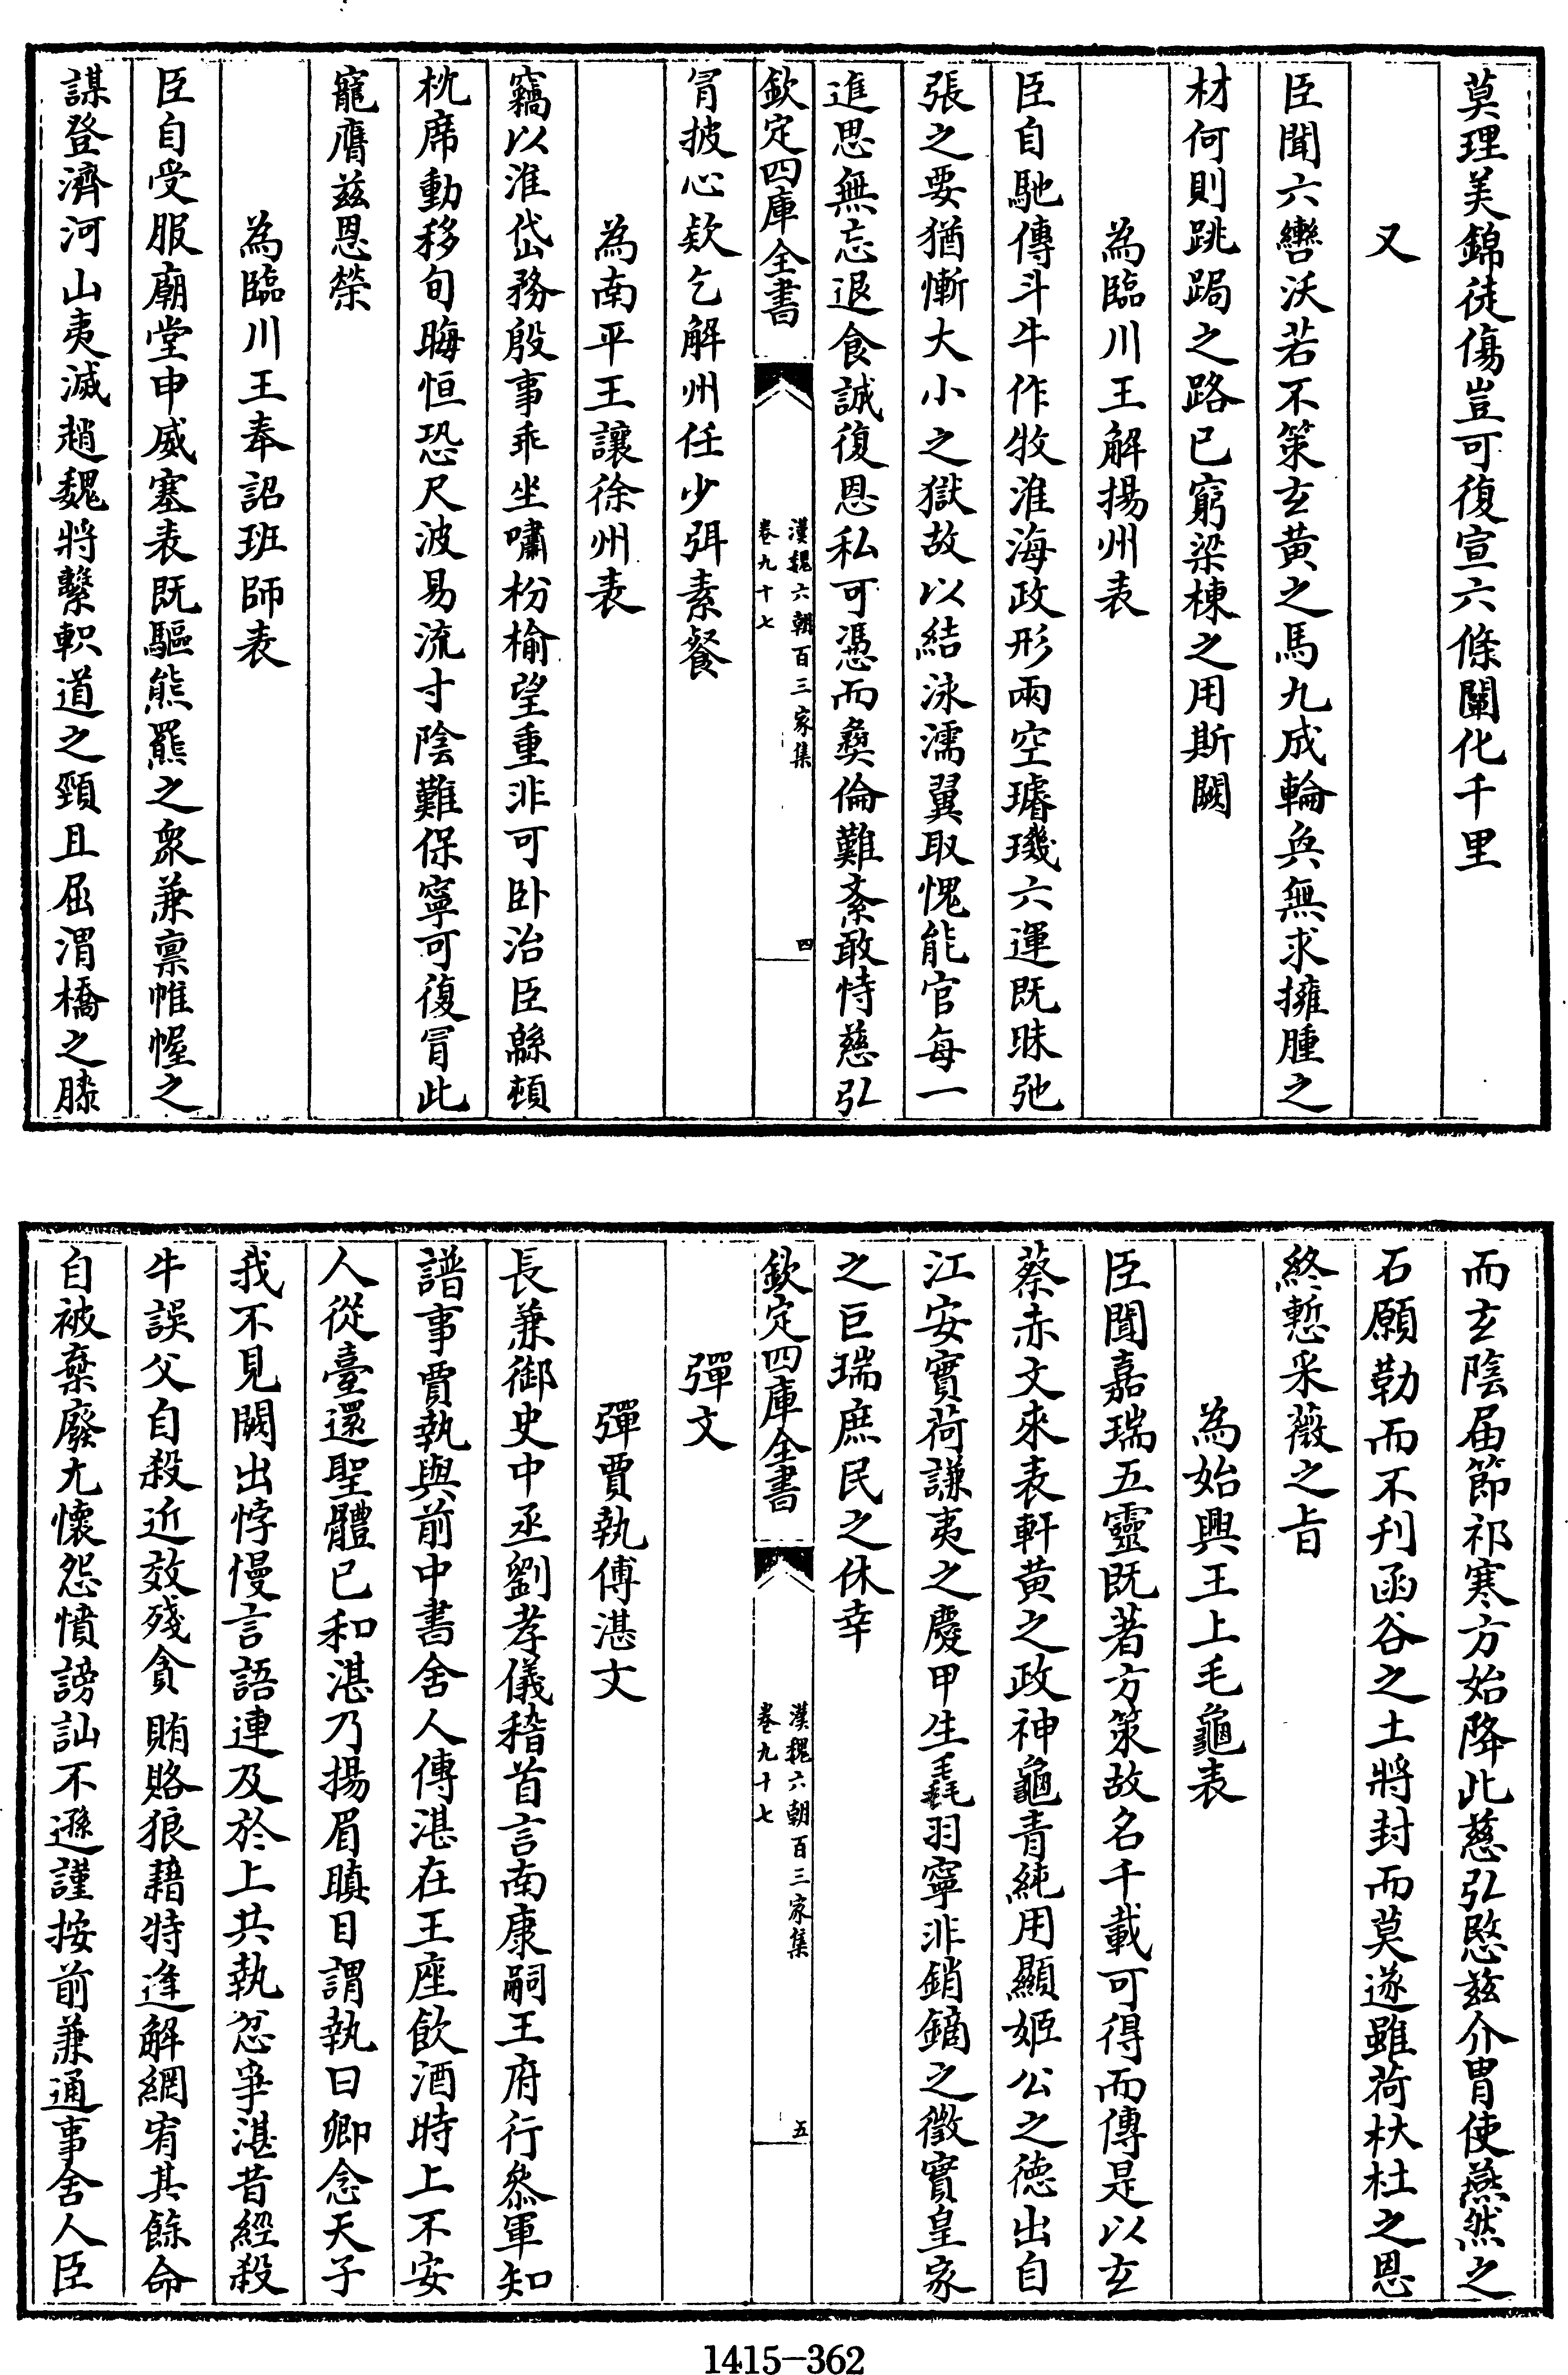 莫理美錦徒傷豈可復宣六條闡化千里
又
臣聞六轡沃若不策玄黃之馬九成輪奐無求擁腫之
材何則跳跼之路已窮梁棟之用斯闕
為臨川王解揚州表
臣自馳傳斗牛作牧淮海政形兩空璿璣六運既昧弛
張之要猶慚大小之獄故以結泳濡翼取愧能官每一
進思無忘退食誠復恩私可憑而彝倫難紊敢恃慈弘
欽定四庫全書
漢魏六朝百三家集
卷九十七
四
冐披心欵乞解州任少弭素餐
為南平王讓徐州表
竊以淮岱務殷事乖坐嘯枌榆望重非可卧治臣緜頓
枕席動移旬晦恒恐尺波易流寸陰難保寧可復冐此
寵膺兹恩榮
為臨川王奉詔班師表
臣自受服廟堂申威塞表既驅熊羆之衆兼禀帷幄之
謀登濟河山夷滅趙魏將繫軹道之頸且屈渭橋之膝
而玄陰届節祁寒方始降此慈弘愍兹介胄使燕然之
石願勒而不刋函谷之土將封而莫遂雖荷杕杜之恩
終慙采薇之㫖
為始興王上毛龜表
臣聞嘉瑞五靈既著方策故名千載可得而傳是以玄
蔡赤文來表軒黃之政神龜青純用顯姬公之德出自
江安實荷謙夷之慶甲生毳羽寧非銷鏑之徵實皇家
之巨瑞庶民之休幸
欽定四庫全書
漢魏六朝百三家集
卷九十七
五
彈文
彈賈執傅湛文
長兼御史中丞劉孝儀稽首言南康嗣王府行叅軍知
譜事賈執與前中書舍人傅湛在王座飲酒時上不安
人從臺還聖體已和湛乃揚眉瞋目謂執曰卿念天子
我不見闕出悖慢言語連及於上共執忿爭湛昔經殺
牛誤父自殺近效殘貪賄賂狼藉特逢解網宥其餘命
自被棄廢尤懷怨憤謗訕不遜謹按前兼通事舍人臣
1415-362